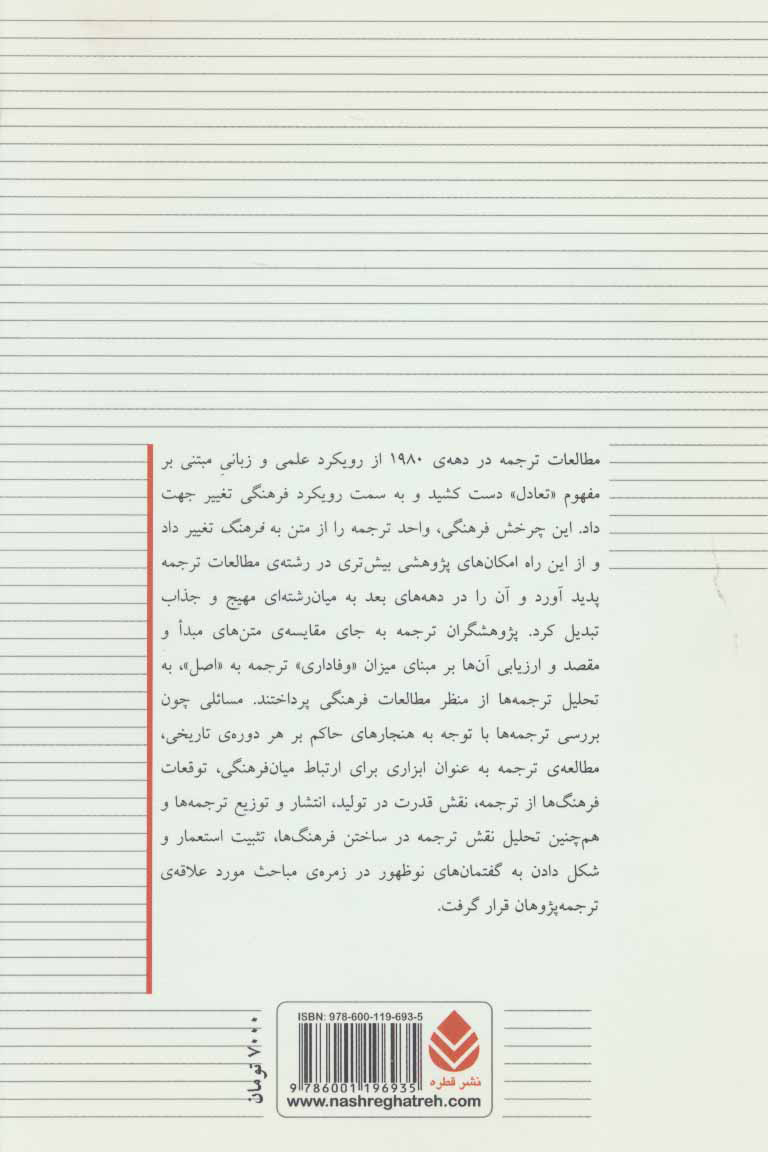 مطالعات ترجمه در دهه‌ی ۱۹۸۰ از رویکرد علمی و زبانیِ مبتنی بر
مفهوم «تعادل» دست کشید و به سمت رویکرد فرهنگی تغییر جهت
داد. این چرخش فرهنگی، واحد ترجمه را از متن به فرهنگ تغییر داد
و از این راه امکان‌های پژوهشی بیش‌تری در رشته‌ی مطالعات ترجمه
پدید آورد و آن را در دهه‌های بعد به میان‌رشته‌ای مهیج و جذاب
تبدیل کرد. پژوهشگران ترجمه به جای مقایسه‌ی متن‌های مبدأ و
مقصد و ارزیابی آن‌ها بر مبنای میزان «وفاداری» ترجمه به «اصل»، به
تحلیل ترجمه‌ها از منظر مطالعات فرهنگی پرداختند. مسائلی چون
بررسی ترجمه‌ها با توجه به هنجارهای حاکم بر هر دوره‌ی تاریخی،
مطالعه‌ی ترجمه به عنوان ابزاری برای ارتباط میان‌فرهنگی، توقعات
فرهنگ‌ها از ترجمه، نقش قدرت در تولید، انتشار و توزیع ترجمه‌ها و
هم‌چنین تحلیل نقش ترجمه در ساختن فرهنگ‌ها، تثبیت استعمار و
شکل دادن به گفتمان‌های نوظهور در زمره‌ی مباحث مورد علاقه‌ی
ترجمه‌پژوهان قرار گرفت.
ISBN: 978-600-119-693-5
9 786001 196935
نشر قطره
www.nashreghatreh.com
۷۰۰۰ تومان